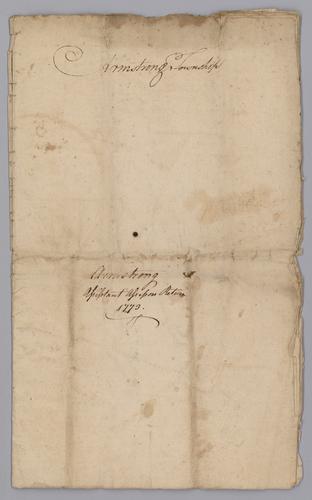 Armstrong Township
Armstrong
Assistant Assessors Return
1773.